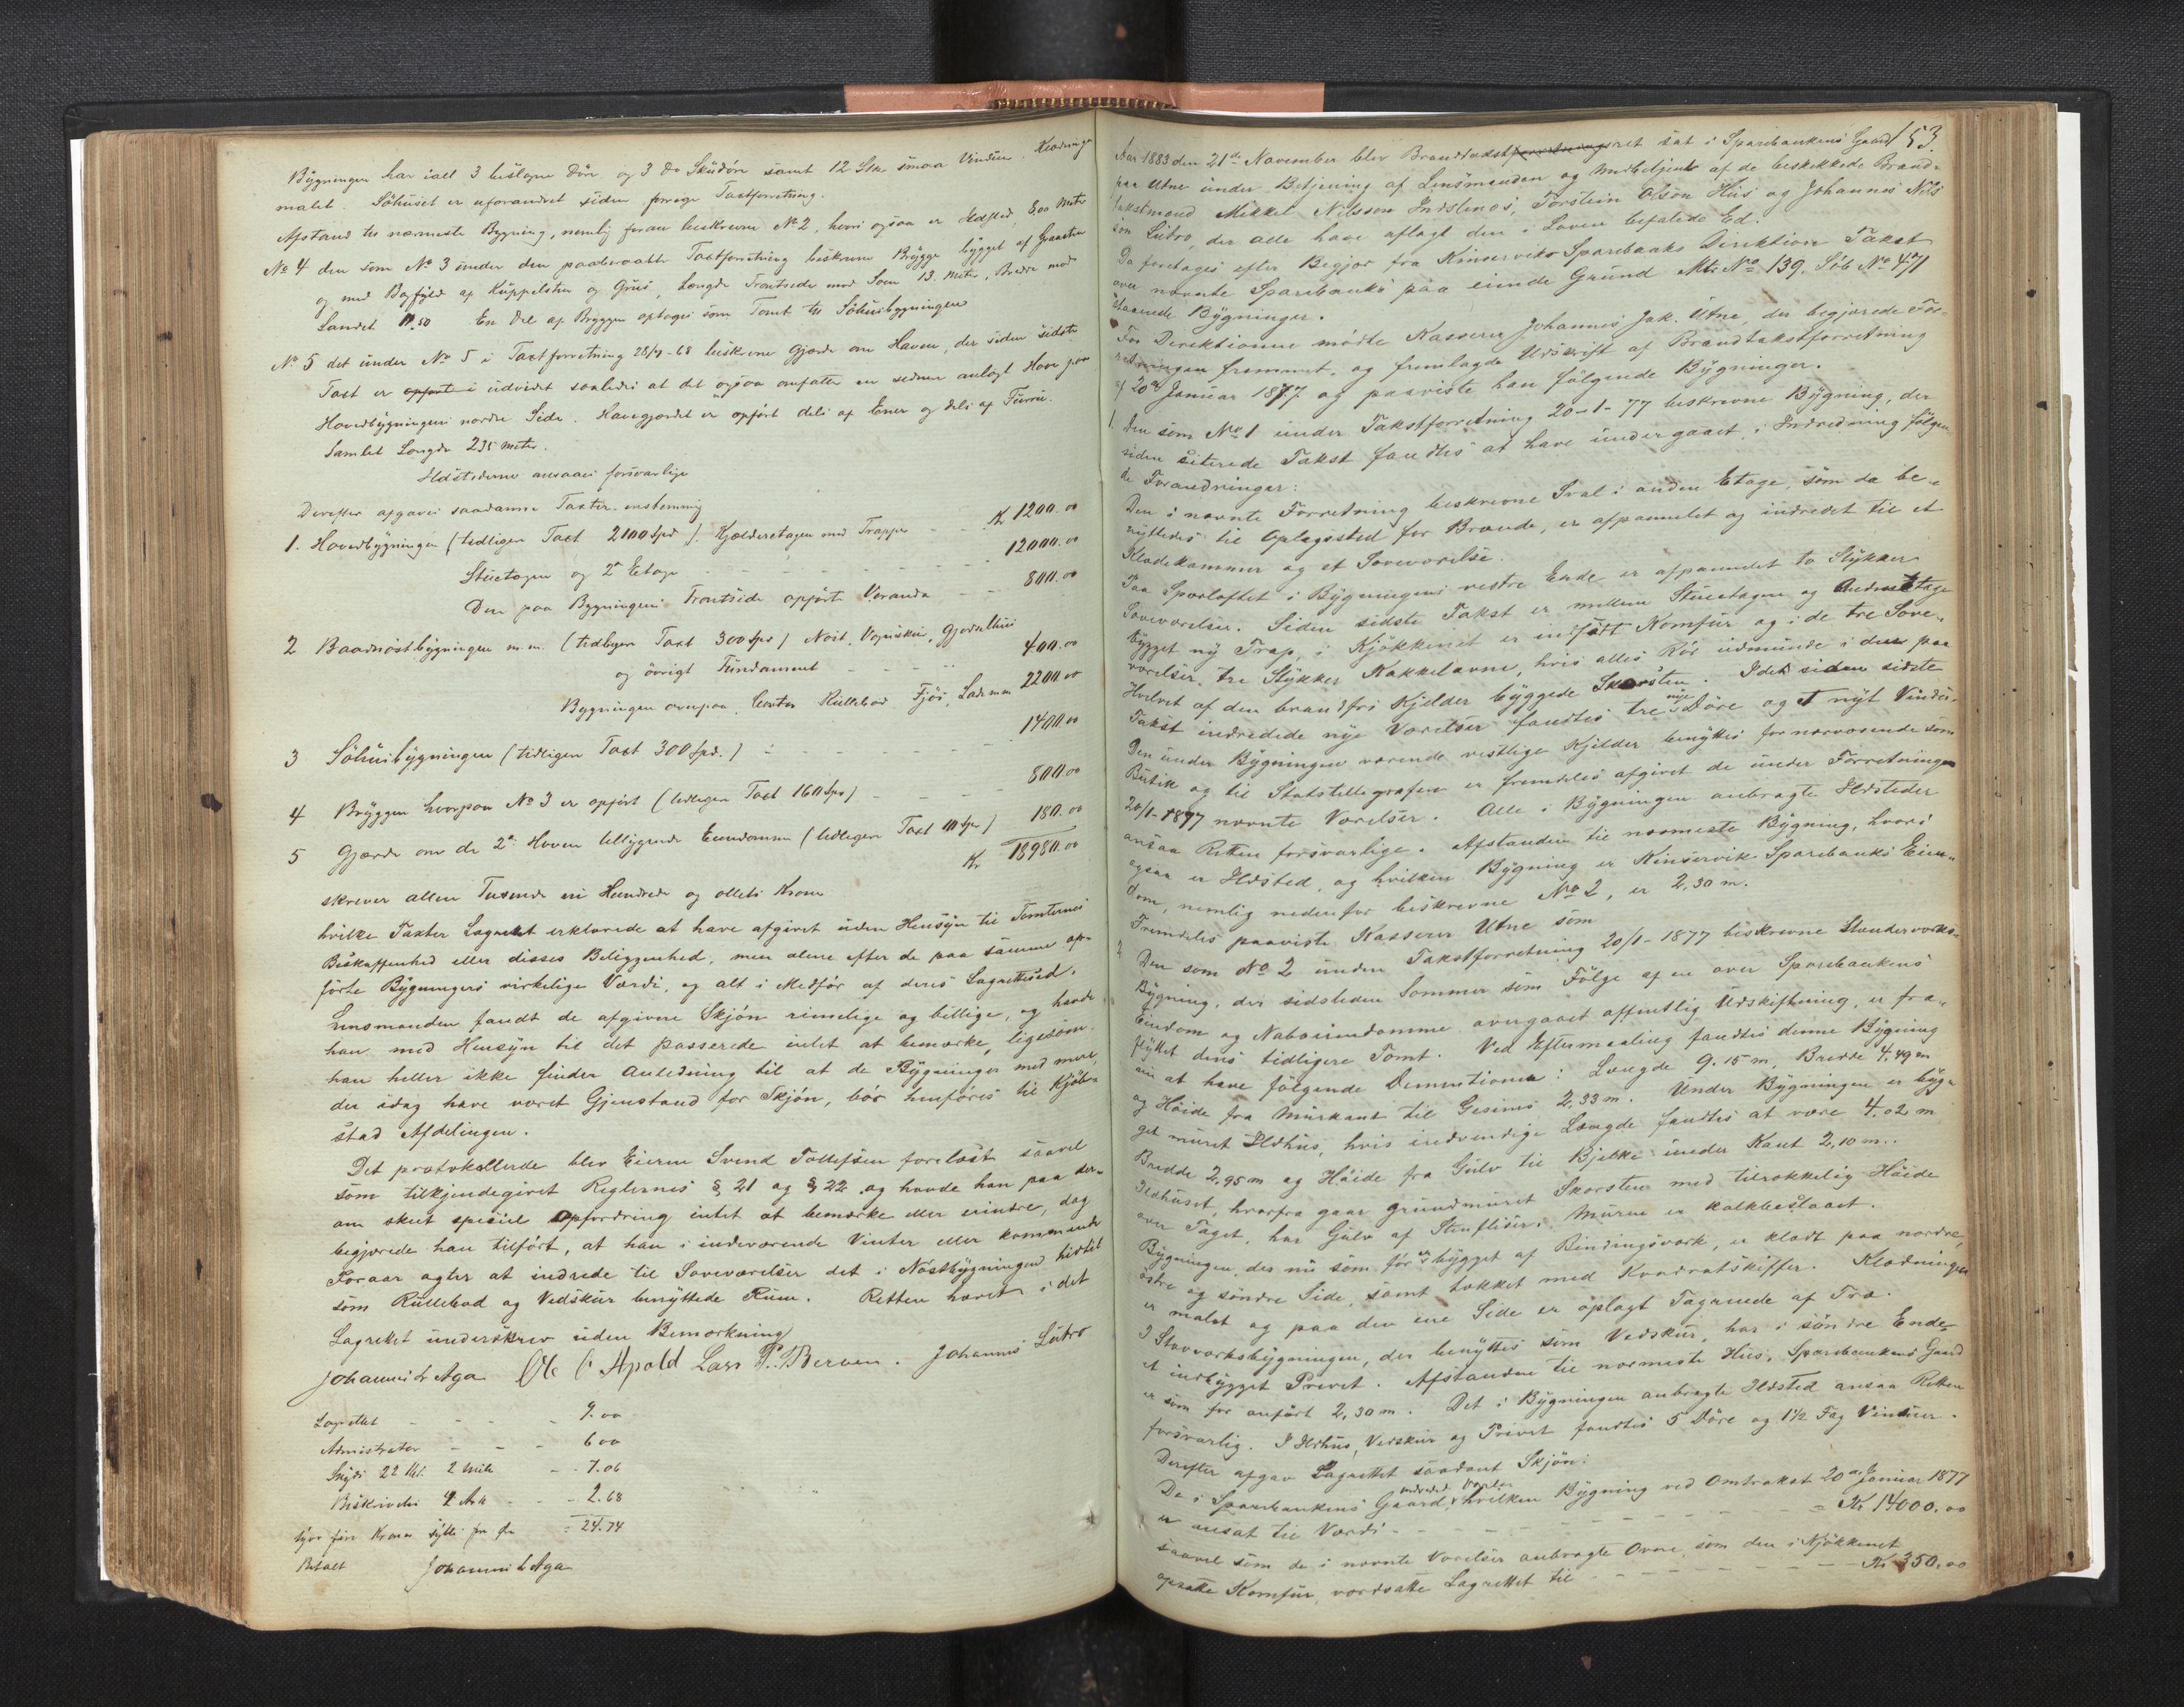 Bygningen har ialt 3 beslagne Döre og 3 Do Skudöre samt 12 Stk. smaa Vinduer. Klædningen
malet. Söhuset er uforandret siden forrige Taxtforretning.
Afstand til nærmeste Bygning, nemlig foran beskrevne No 2, hvori ogsaa er Ildsted, 8,00 Meter
No 4 den som No 3 under den paaberaabte Taxtforretning beskrevne Brygge bygget af Graasten
og med Bagfyld af Kuppelsten og Grus, Længde Frontside mod Söen 13. Meter, Bredde mod
Landet 11.50 En Del af Bryggen optages som Tomt til Söhusbygningen
No 5 det under No 5 i Taxtforretning 28/9-68 beskrevne Gjærde om Haven, der siden sidste
Taxt er opfört i udvidet saaledes at det ogsaa omfatter en sednere anlagt Have paa
Hovedbygningens nordre Side. Havegjærdet er opfört dels af Ener og dels af Furru.
Samlet Længde 235 Meter.
Ildstederne ansaaes forsvarlige
Derefter afgaves saadanne Taxter enstemmig
1. Hovedbygningen (tidligere Taxt 2100 Spd). Kjelderetagen med Trapper - - Kr 1200.00
Stuetagen og 2n Etage - - - 12000.00
Den paa Bygningens Frontside opförte Veranda - - 800.00
2 Baadnöstbygningen m.m. (tidligere Taxt 300 Spd) Nöst, Vognskur, Gjødselhus
og övrigt Fundament - - - 400.00
Bygningen ovenpaa, Rullebod Fjös, Lade mm 2200.00
3 Söhusbygningen (tidligere Taxt 300 Spd.) - - - 1400.00
4 Bryggen hvorpaa No 3 er opfört (tidligere Taxt 160 Spd) - - - 800.00
5 Gjærde om de 2de Haven tilliggende Eiendomme (tidligere Taxt 40 Spd) 180.00
Kr. 18980.00
skriver atten Tusende ni Hundrede og otteti Kroner
hvilke Taxter Lagrettet erklærede at have afgivet uden Hensyn til Tomternes
Beskaffenhed eller disses Beliggenhed, men alene efter de paa samme op-
förte Bygningers virkelige Værdi, og alt i Medför af deres Lagrettesed.
Lensmanden fandt de afgivne Skjön rimelige og billige, og havde
han med Hensyn til det passerede intet at bemærke, ligesom
han heller ikke finder Anledning til at de Bygninger med mere,
der idag have været Gjenstand for Skjön, bör henföres til Kjöb-
stad Afdelingen.
Det protokollerede blev Eieren Svend Tollefsen forelæst saavel
som tilkjendegivet Reglernes § 21 og § 22 og havde han paa der-
om skeet speciel Opfordring intet at bemærke eller erindre, dog
begjærede han tilfört, at han i indeværende Vinter eller kommende
Foraar agter at indrede til Soveværelser det i Nöstbygningen hidtil
som Rullebod og Vedskur benyttede Rum. Retten hævet i det
Lagrettet underskrev uden Bemærkning
Johannis L Aga Ole O Apold Lars P. Berven. Johannes Lutro
Lagrettet - - - 9.00
Administrator - - - 6.00
Skyds 22 Kl. 2 Mile - - 7.06
Beskrivelse 4 Ark - - 2.68
tyve fire Kroner sytti fire Øre = 24.74
Betalt Johannis L Aga
153.
Aar 1883 den 21de November blev Brandtaxtforretningsret sat i Sparebankens Gaard
paa Utne under Betjening af Lensmanden og Medbetjent af de beskikkede Brand-
takstmænd Mikkel Nilsson Indstenes, Torstein Olson Hus og Johannes Nils
sön Lutro, der alle have aflagt den i Loven befalede Ed.
Da foretages efter Begjær fra Kinserviks Sparebanks Direktion Takst
over nævnte Sparebanks paa eiende Grund Mtr No 139. Löb No 471
staaende Bygninger.
For Direktionen mödte Kasserer Johannes Jak. Utne, der begjærede For-
retningen fremmet, og fremlagde Udskrift af Brandtakstforretning
af 20de Januar 1877 og paaviste han fölgende Bygninger.
1. Den som No 1 under Takstforretning 20-1-77 beskrevne Bygning, der
siden siterede Takst fandtes at have undergaaet i Indredning fölgen-
de Forandringer:
Den i nævnte Forretning beskrevne Sval i anden Etage, som da be-
nyttedes til Oplagssted for Brænde, er afpannelet og indredet til et
Klædekammer og et Soveværelse.
Paa Sperloftet i Bygningens vestre Ende er afpannelet to Stykker
Soveværelser. Siden sidste Takst er mellem Stueetagen og Anden Etage
bygget ny Trap, i Kjökkenet er indsatt Komfur og i de tre Sove-
værelser, tre Stykker Kakkelovne, hvis alles Rör udmunde i den paa
Hvelvet af den brandfri Kjelder byggede Skorsten. I det siden sidste
Takst indredede nye Værelser fandtes tre nye Döre og et nyt Vindu.
Den under Bygningen værende vestlige Kjelder benyttes for nærværende som
Butik og til Statstelegrafen er fremdeles afgivet de under Forretningen
20/1-1877 nævnte Værelser. Alle i Bygningen anbragte Ildsteder
ansaa Retten forsvarlige. Afstanden til nærmeste Bygning, hvori
ogsaa er Ildsted, og hvilken Bygning er Kinservik Sparebanks Eien-
dom, nemlig nedenfor beskrevne No 2, er 2,30 m.
Fremdeles paaviste Kasserer Utne som
2 Den som No 2 under Takstforretning 20/1-1877 beskrevne Stændervrks-
Bygning, der sidstleden Sommer som Fölge af en over Sparebankens
Eiendom og Naboeiendomme overgaaet offentlig Udskiftning, er fra-
flyttet dens tidligere Tomt. Ved Eftermaaling fandtes denne Bygning
nu at have fölgende Demmtioner: Længde 9.15 m, Bredde 4,49 m
og Höide fra Murkant til Gesims 2,33 m. Under Bygningen er byg-
get muret Ildhus, hvis indvendige Længde fandtes at være 4,02 m
Bredde 2,95 m og Höide fra Gulv til Bjelke under Kant 2,10 m..
Ildhuset, hvorfra gaar grundmuret Skorsten med tilrækkelig Höide
over Taget, har Gulv af Stenfliser. Murene er kalkbeslaaet.
Bygningen, der nu som för er bygget af Bindingsværk, er klædt paa nordre,
östre og söndre Side, samt tækket med Kvadratskiffer. Klædningen
er malet og paa den ene Side er oplagt Tagrende af Træ.
I Stavværksbygningen, der benyttes som Vedskur, har i söndre Ende
et indbygget Privet. Afstanden til nærmeste Hus, Sparebankens Gaard
er som för anfört 2,30 m. Det i Bygningen anbragte Ildsted ansaa Retten
forsvarlig. I Ildhus, Vedskur og Privet fandtes 5 Döre og 1½ Fag Vinduer.
Derefter afgav Lagrettet saadant Skjön:
De i Sparebankens Gaard, indredede Værelser hvilken Bygning ved Omtakst 20de Januar 1877
er ansat til Værdi - - - = Kr 14000.00
saavel som de i nævnte Værelser anbragte Ovne, som den i Kjökkenet
opsatte Komfur, værdsatte Lagrettet til - - - Kr 350.00